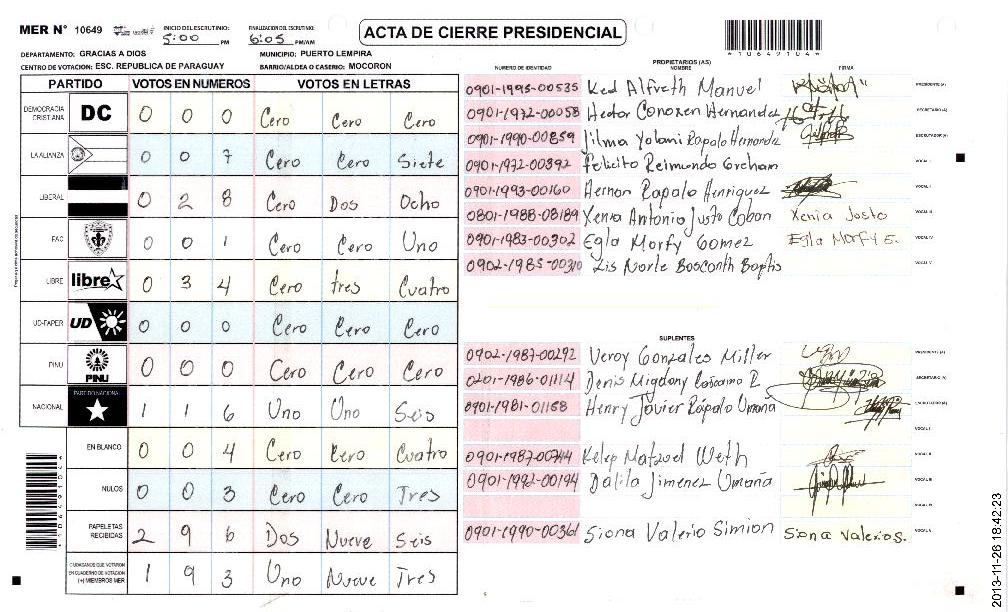 MER N° 10649 INICIO DEL ESCRUTINIO: 5:00 PM FINALIZACION DEL ESCRUTINIO: 6:05 PM/AM ACTA DE CIERRE PRESIDENCIAL
*106491041*
DEPARTAMENTO: GRACIAS A DIOS MUNICIPIO: PUERTO LEMPIRA
CENTRO DE VOTACION: ESC. REPUBLICA DE PARAGUAY BARRIO/ALDEA O CASERIO: MOCORON
PARTIDO VOTOS EN NUMEROS VOTOS EN LETRAS
DEMOCRACIA CRISTIANA DC 0 0 0 Cero Cero Cero
LA ALIANZA 0 0 7 Cero Cero Siete
LIBERAL 0 2 8 Cero Dos Ocho
FAC 0 0 1 Cero Cero Uno
LIBRE libre 0 3 4 Cero tres Cuatro
UD-FAPER UD 0 0 0 Cero Cero Cero
PINU PINU 0 0 0 Cero Cero Cero
NACIONAL PARTIDO NACIONAL 1 1 6 Uno Uno Seis
EN BLANCO 0 0 4 Cero Cero Cuatro
NULOS 0 0 3 Cero Cero Tres
PAPELETAS RECIBIDAS 2 9 6 Dos Nueve Seis
CIUDADANOS QUE VOTARON EN CUADERNO DE VOTACION (+) MIEMBROS MER 1 9 3 Uno Nueve Tres
PROPIETARIOS (AS)
NUMERO DE IDENTIDAD NOMBRE FIRMA
0901-1993-00535 Ked Alfreth Manuel PRESIDENTE (A)
0901-1972-00058 Hector Conoxen Hernandez SECRETARIO (A)
0901-1990-00859 Jilma Yolani Rapalo Hernandez ESCRUTADOR (A)
0901-1972-00392 Felicito Reimundo Greham VOCAL I
0901-1993-00160 Hernan Rapalo Henriquez VOCAL II
0801-1988-08189 Xenia Antonia Justo Coban Xenia Justo VOCAL III
0901-1983-00302 Egla Morfy Gomez Egla Morfy G. VOCAL IV
0902-1985-00310 Lis Norle Bosconth Baptis VOCAL V
SUPLENTES
0902-1987-00292 Veroy Gonzales Miller PRESIDENTE (A)
0201-1986-01114 Denis Migdony SECRETARIO (A)
0901-1981-01168 Henry Javier Rápalo Umaña ESCRUTADOR (A)
VOCAL I
0901-1987-00744 Kelep Matzuel Weth VOCAL II
0901-1992-00194 Dalila Jimenez Umaña VOCAL III
VOCAL IV
0901-1990-00361 Siona Valerio Simion Siona Valerios. VOCAL V
2013-11-26 18:42:23